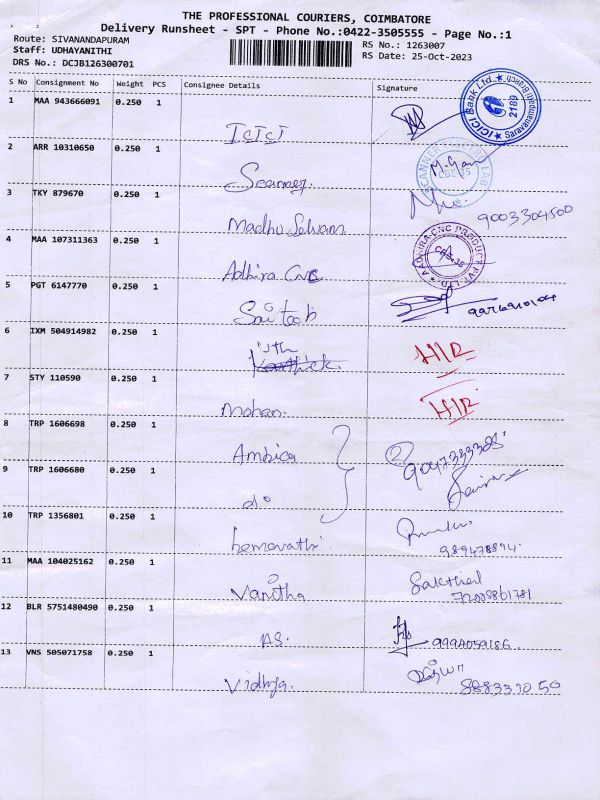 THE PROFESSIONAL COURIERS, COIMBATORE
Delivery Runsheet - SPT - Phone No.:0422-3505555 - Page No.:1
Route: SIVANANDAPURAM
RS No.: 1263007
Staff: UDHAYANITHI
RS Date: 25-Oct-2023
DRS No.: DCJB126300701
S No Consignment No Weight PCS Consignee Details Signature
ICICI Bank Ltd. 2189 Saravanampatti Branch
1 MAA 943666091 0.250 1
ICICI
2 ARR 10310650 0.250 1
Scanner.
M. Gani
3 TKY 879670 0.250 1
Madhu Selvam
9003304500
4 MAA 107311363 0.250 1
Adhira CNC
AADHIRA CNC PRODUCT PVT. LTD. CBE-35
5 PGT 6147770 0.250 1
Saitech
9976910104
6 IXM 504914982 0.250 1
Karthick
H/R
7 STY 110590 0.250 1
Mohan.
H/R
8 TRP 1606698 0.250 1
Ambica
2
9047333328
9 TRP 1606680 0.250 1
do
10 TRP 1356801 0.250 1
hemavathi
989478894
11 MAA 104025162 0.250 1
Vanitha
Sakthiel
12 BLR 5751480490 0.250 1
AS.
9994059186
13 VNS 505071758 0.250 1
Vidhya.
8883391050